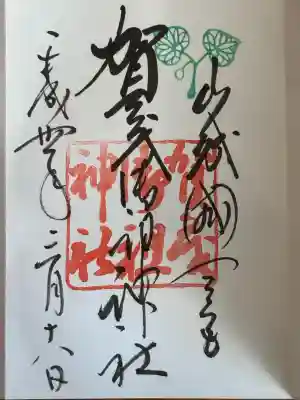 山城國一之宮
賀茂御祖神社
平成卅年二月十八日
賀茂御祖神社